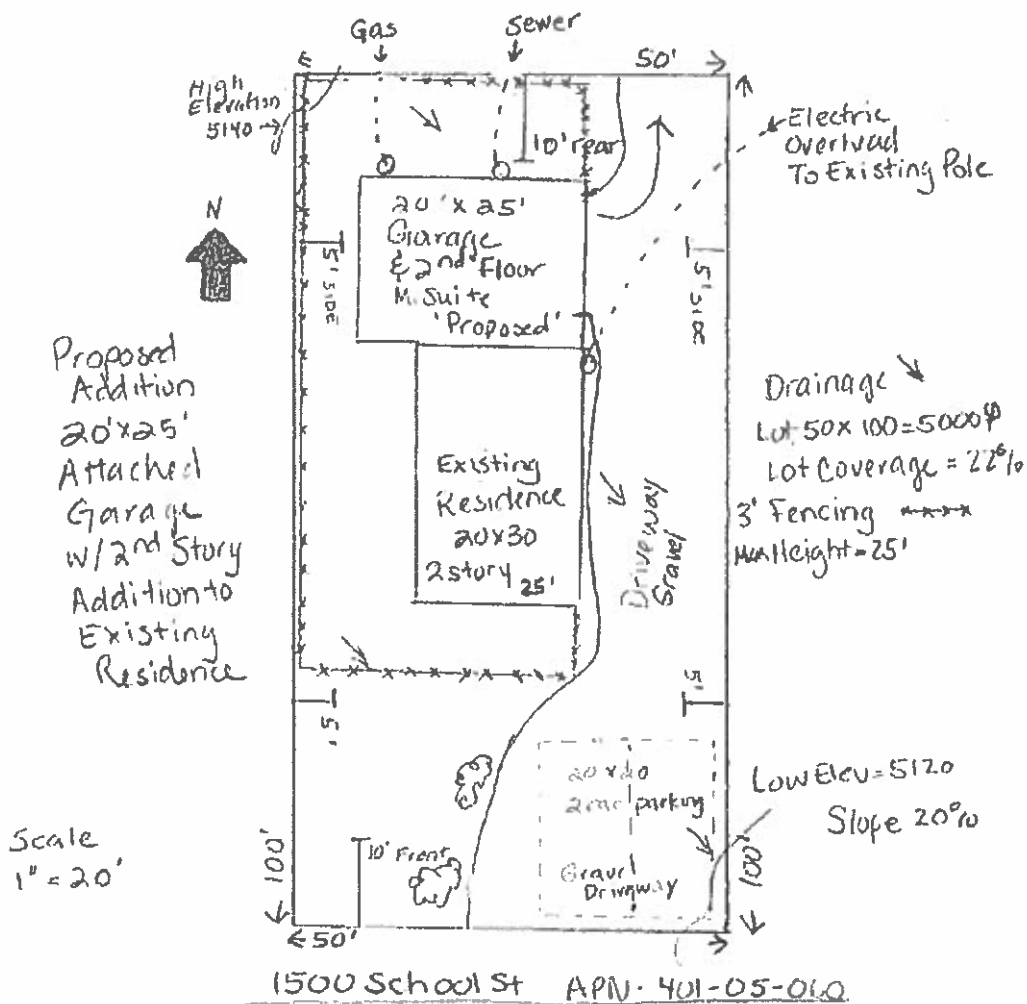 Gas
Sewer
50'
High
Elevation
5140
10' rear
Electric
Overhead
To Existing Pole
N
20' x 25'
Garage
& 2nd Floor
M. Suite
'Proposed'
5' SIDE
5' SIDE
Proposed
Addition
20'x25'
Attached
Garage
w/ 2nd Story
Addition to
Existing
Residence
Existing
Residence
20x30
2 story 25'
Driveway
Gravel
Drainage
Lot 50 x 100 = 5000
Lot Coverage = 22%
3' Fencing
Max Height = 25'
5'
5'
20 x 20
2 car parking
Gravel
Driveway
Low Elev = 5120
Slope 20%
Scale
1" = 20'
100'
10' Front
100'
50'
1500 School St APN. 401-05-060